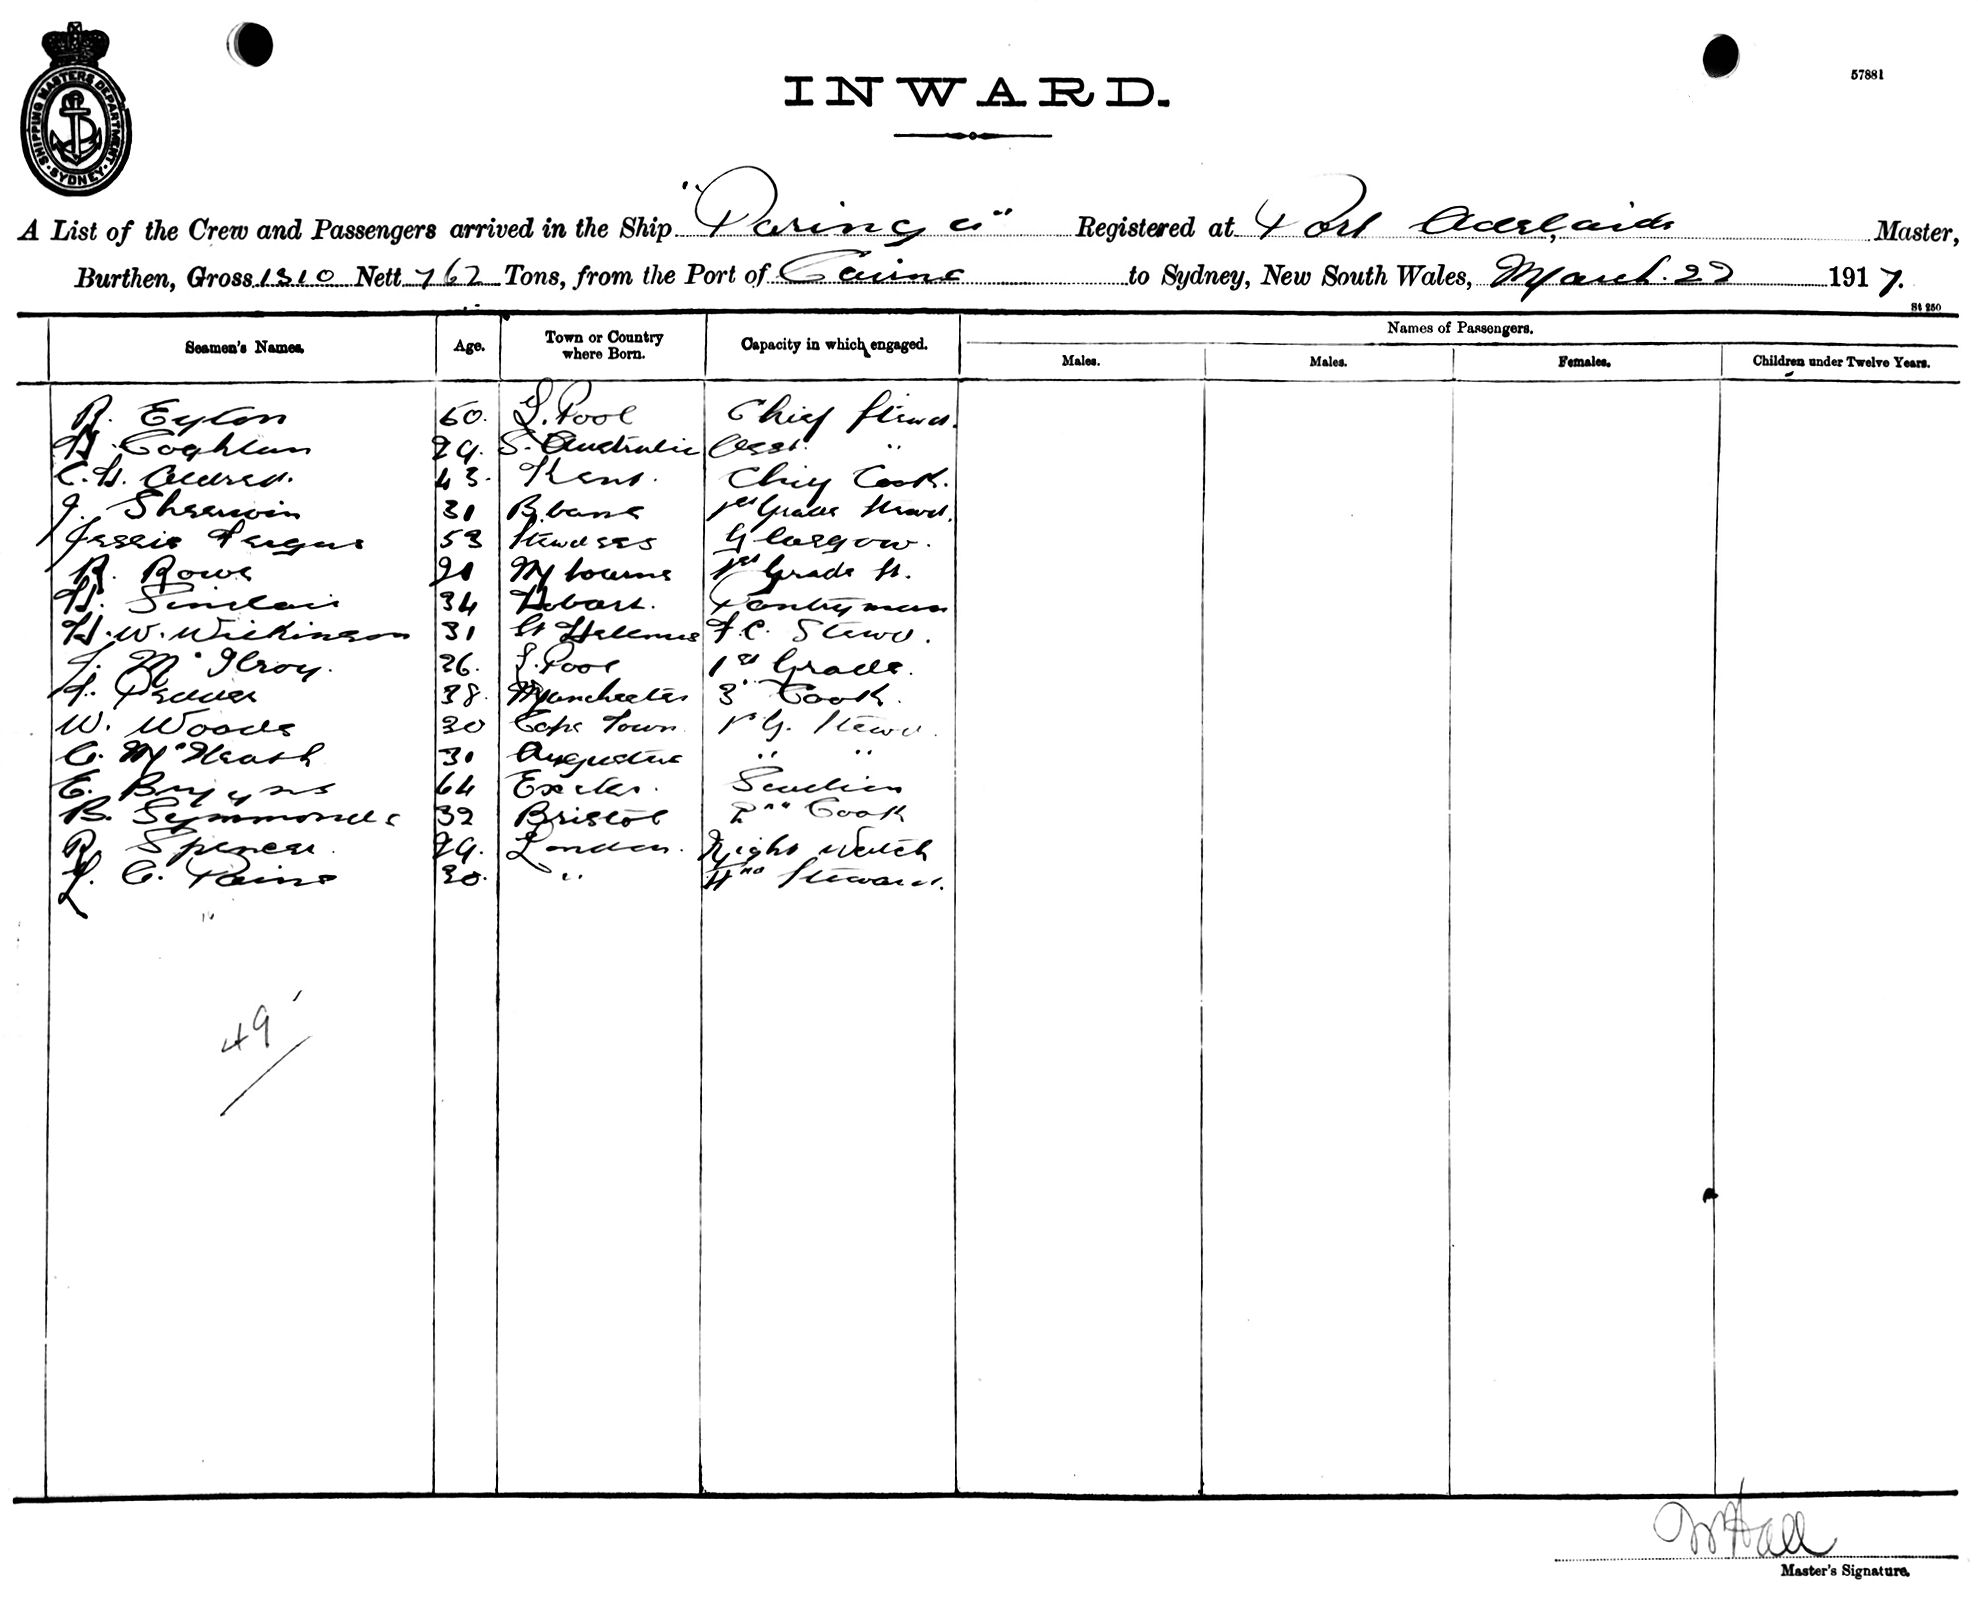 SHIPPING MASTERS DEPARTMENT
SYDNEY
57881
INWARD.
A List of the Crew and Passengers arrived in the Ship "Paringa" Registered at Port Adelaide Master,
Burthen, Gross 1310 Nett 762 Tons, from the Port of Cairns to Sydney, New South Wales, March 22 1917.
St 250
Seamen's Names. Age. Town or Country where Born. Capacity in which engaged. Names of Passengers.
Males. Males. Females. Children under Twelve Years.
R. Eyton 50. L.Pool Chief Stewd.
H. Coghlan 29. S. Australia Asst. "
C. H. Aldred. 43. Kent. Chief Cook.
J. Sherwin 31 B.bane 1st Grade Stewd.
Jessie Fergus 53 Stewdess Glasgow.
R. Rowe 21 M bourne 1st Grade St.
H. Sinclair 34 Hobart. Pantryman
H. W. Wilkinson 31 St Helena F.C. Stewd.
J. McIlroy. 26. L.Pool 1st Grade.
38. Manchester 3 Cook.
W. Woods 30 Cape Town 1st G. Stewd.
C. McHeath 31 Augusta " "
E. 64 Exeter. Scullion
B. Symmonds 32 Bristol 2nd Cook
R. Spencer. 29. London. Night Watch
L. C. Paine 30. " Steward.
49
W Hall
Master's Signature.